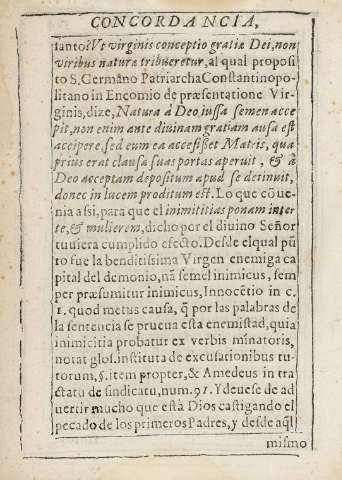 CONCORDANCIA,
tanto? Vt virginis conceptio gratiæ Dei, non
viribus naturæ tribueretur, al qual proposi
to S. Germâno Patriarcha Constantinopo-
litano in Encomio de præsentatione Vir-
ginis, dize, Natura à Deo iussa semen acce
pit, non enim ante diuinam gratiam ausa est
accipere, sed eum ea accesisset Matris, qua
prius erat clausa suas portas aperuit, & à
Deo acceptam depositum apud se detinuit,
donec in lucem proditum est. Lo que cõue-
nia assi, para que el inimititias ponam inter
te, & mulierem, dicho por el diuino Señor
tuuiera cumplido efecto. Desde el qual pũ
to fue la benditissima Virgen enemiga ca
pital del demonio, nã semel inimicus, sem
per præsumitur inimicus, Innocẽtio in c.
1. quod metus causa, q̃ por las palabras de
la sentencia se prueua esta enemistad, quia
inimicitia probatur ex verbis minatoris,
notat glos. instituta de excusationibus tu-
torum, §. item propter, & Amedeus in tra
ctatu de sindicatu, num. 91. Y deuese de ad
uertir mucho que està Dios castigando el
pecado de los primeros Padres, y desde aq̃l
mismo